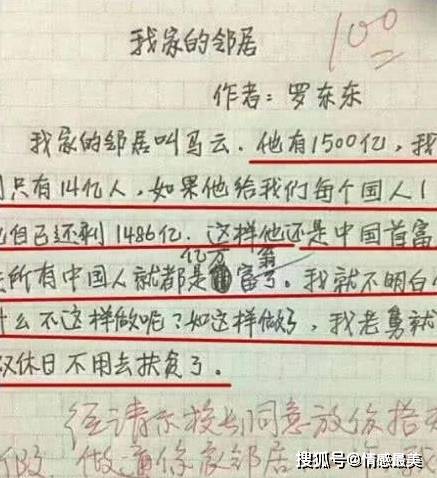 100
我家的邻居
作者：罗东东
我家的邻居叫马云．他有1500亿，我
只有14亿人，如果他给我们每个国人1
自己还剩1486亿．这样他还是中国首富
所有中国人就都是亿万富翁了。我就不明白
什么不这样做呢？如这样做了，我老舅就
双休日不用去扶贫了。
经请示校长同意放你
假 做通你家邻居
搜狐号@情感最美